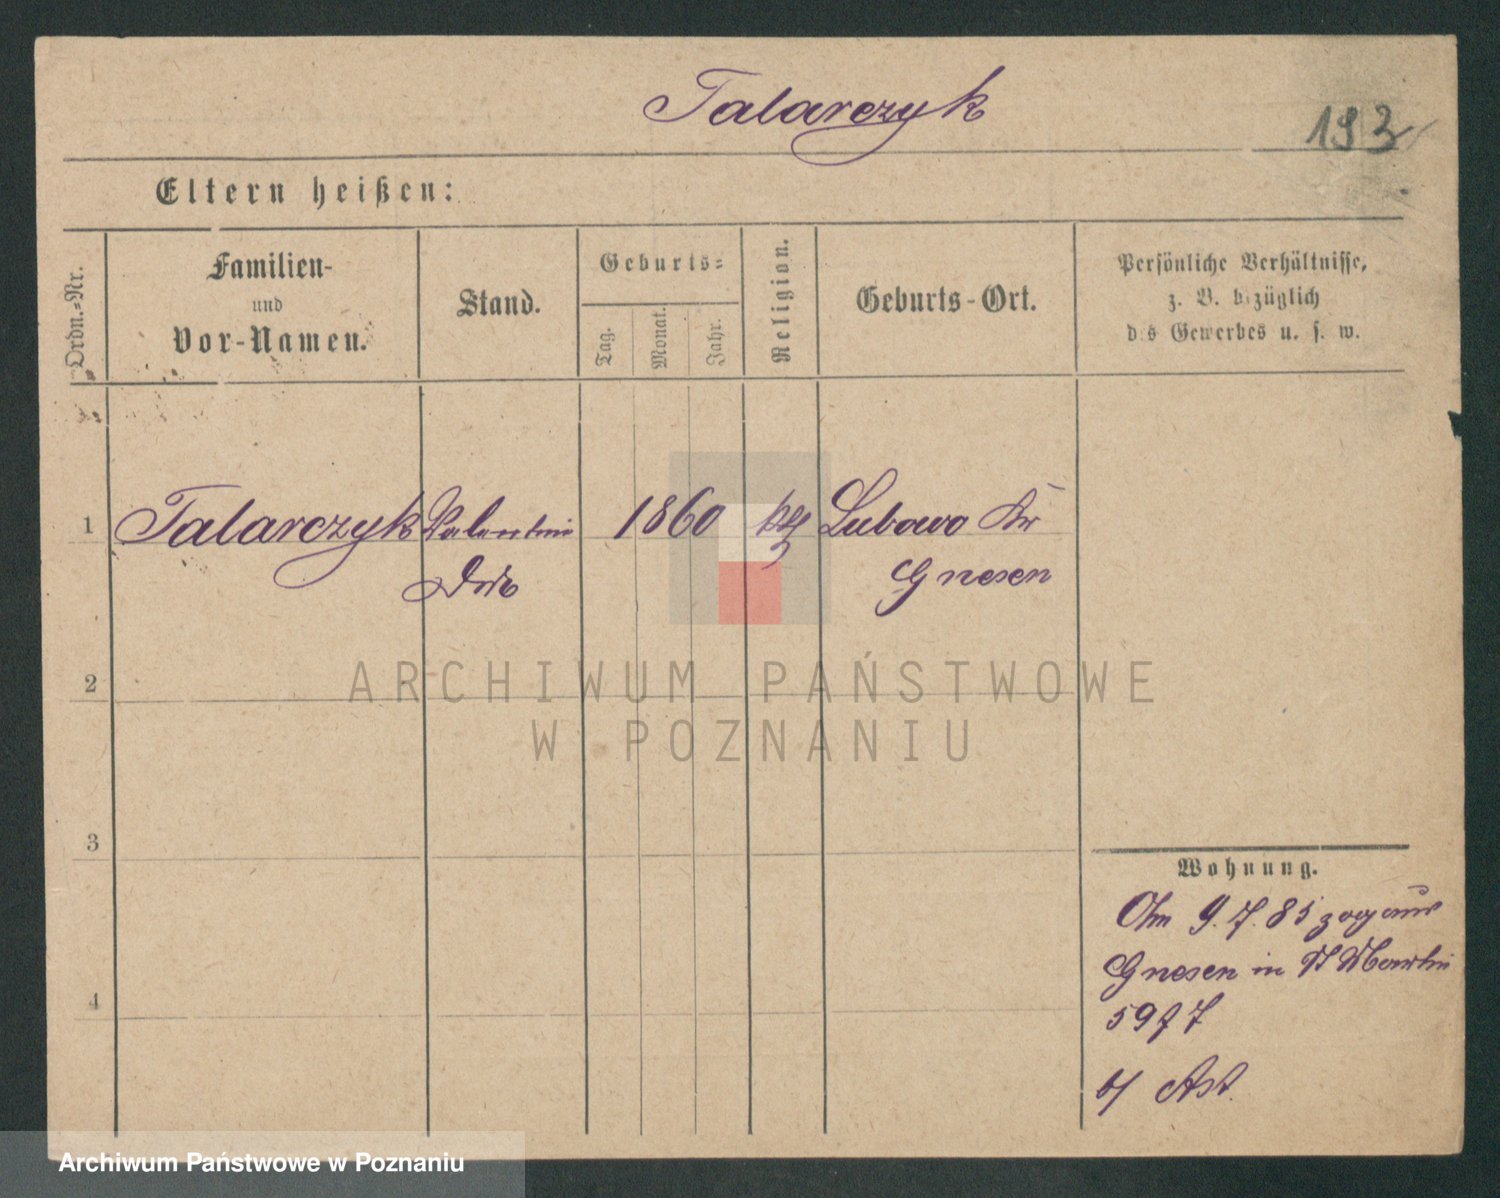 Talarczyk
193
Eltern heißen:
Ordn.-Nr.
Familien-
und
Vor-Namen.
Stand.
Geburts-
Tag.
Monat.
Jahr.
Religion.
Geburts-Ort.
Persönliche Verhältnisse,
z. B. bezüglich
des Gewerbes u. s. w.
1 Talarczyk Valentin 1860 kth Lubowo Kr
Gnesen
2
ARCHIWUM PAŃSTWOWE
W POZNANIU
3
4
Wohnung.
9.7.85 zog aus
Gnesen in St Martin
59
Archiwum Państwowe w Poznaniu